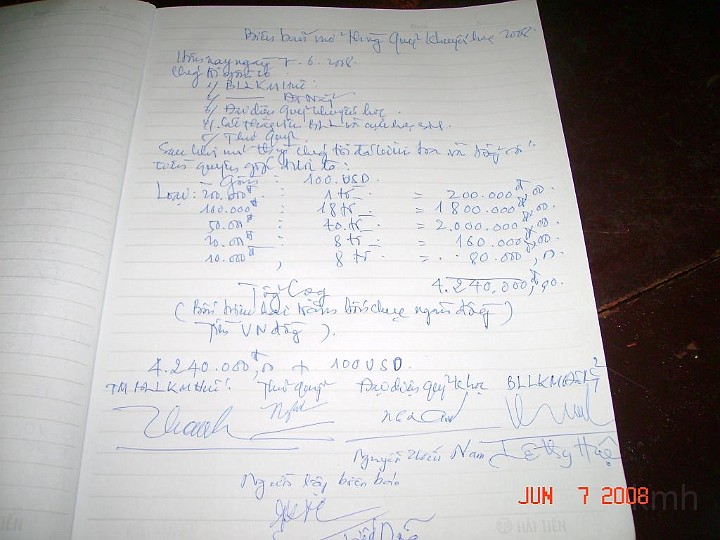 Biên bản mở thùng Quỹ Khuyến học 2008
Hôm nay ngày 7.6.2008
Chúng tôi gồm có
1/ BLLKMHuế:
2/
3/ Đại diện Quỹ khuyến học.
4/
5/ Thủ Quỹ
Sau khi mở thùng chúng tôi đã kiểm và
tiền quyên góp như là:
Gồm: 100.USD.
Loại: 200.000đ : 1 tờ = 200.000đ,00.
100.000đ : 18 tờ = 1.800.000đ,00.
50.000đ : 40 tờ = 2.000.000đ,00.
20.000đ : 8 tờ = 160.000đ,00.
10.000đ : 8 tờ = 80.000đ,00.
4.240.000đ,00.
Tổng Cộng
(Bốn triệu hai trăm bốn chục nghìn đồng)
Tiền VN đồng).
4.240.000,00 + 100USD.
TM BLLKMHuế: Thủ quỹ Đại diện quỹ K học BLLKM
Nguyễn Nam Lê Huệ
Người lập biên bản
JUN 7 2008
kmh
HẢI TIẾN